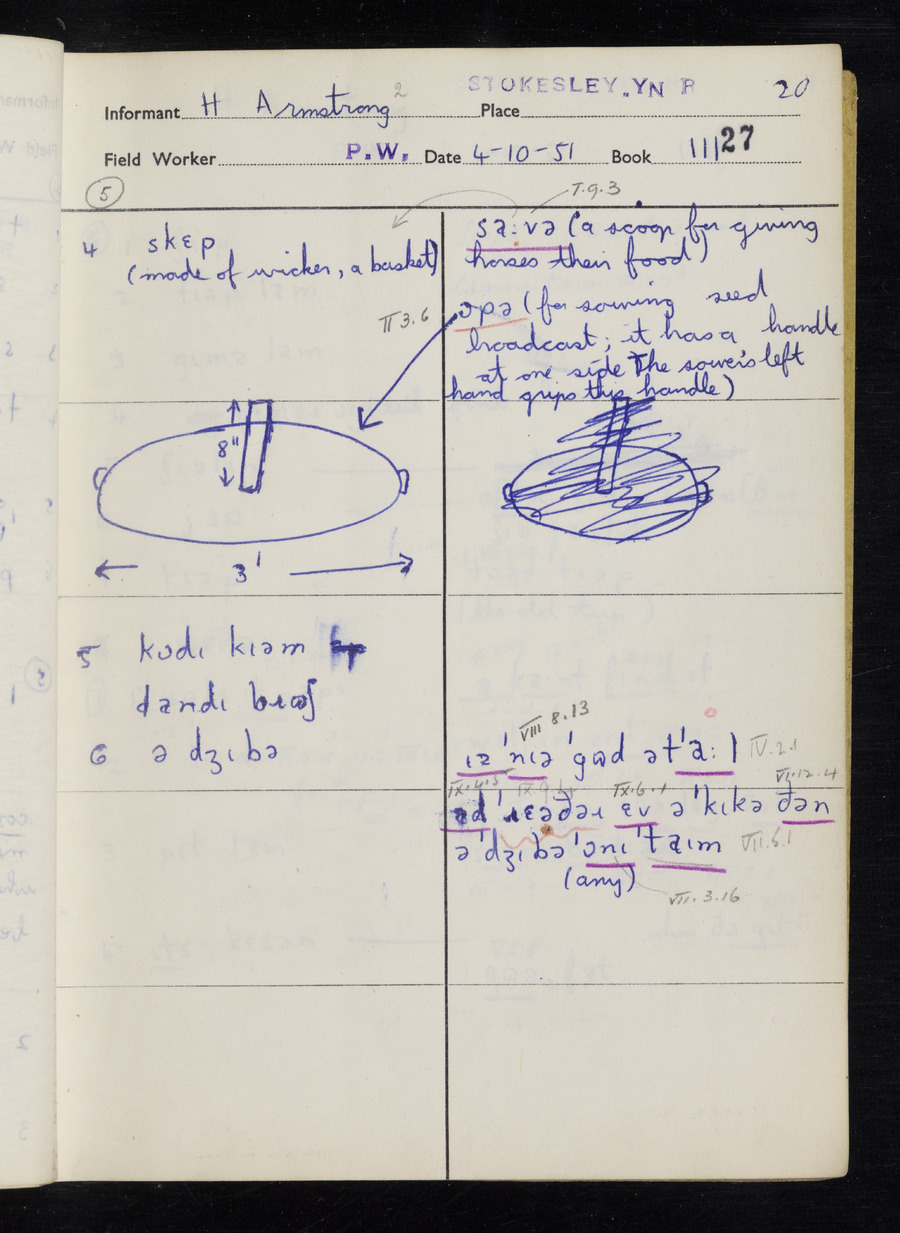 STOKESLEY.YN R
20
Informant H Armstrong 2 Place
Field Worker P.W. Date 4-10-51 Book III 27
5
T.9.3
4 skɛp
(made of wicker, a basket)
II 3.6
sa:və (a scoop for giving
horses their food)
ɔpə (for sowing seed
broadcast; it has a handle
at one side The sower's left
hand grips this handle)
8"
3'
5 kʊdɪ kɪəm
dandɪ
6 ə dʒɪbə
VIII 8.13
ɪz 'nɪə 'gʊd ət 'a: l IV.2.1
IX.4.5 IX.9.4 IX.6.1 VI.12.4
ad 'ɹɛəðəɹ ɛv ə 'kɪkə ðən
ə 'dʒɪbə 'ɔnɪ 'taɪm VII.5.1
(any)
VII.3.16